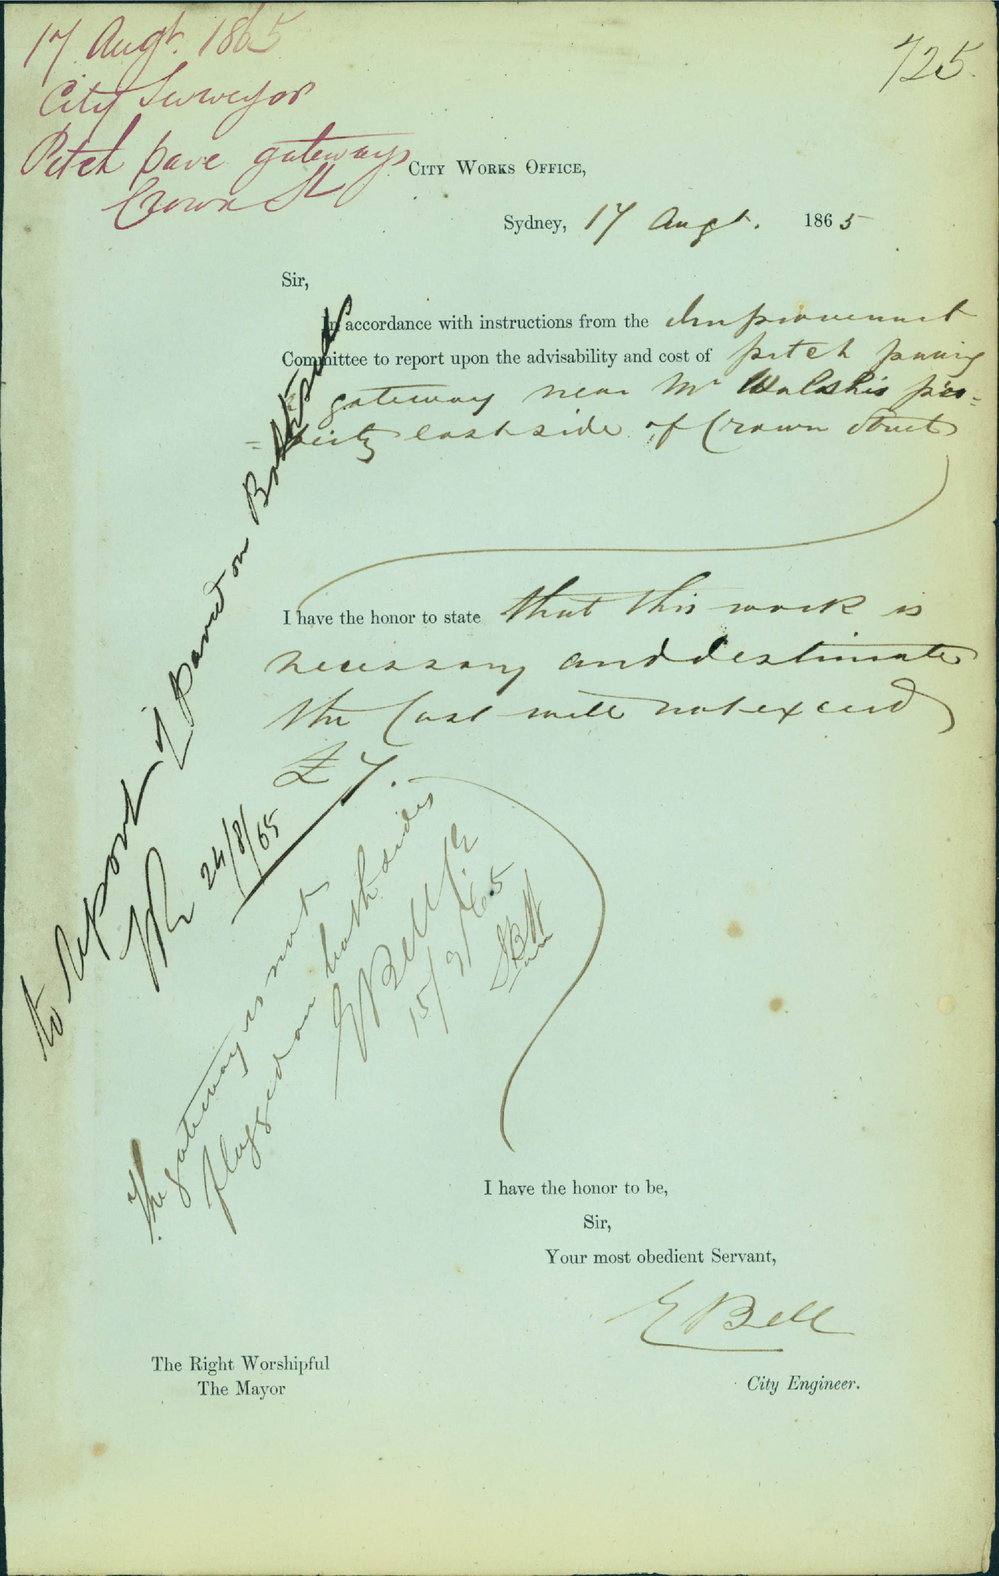 17 Augt. 1865
City Surveyor
Pitch pave gateways
Crown St
725.
CITY WORKS OFFICE,
Sydney, 17 Augt. 1865
Sir,
In accordance with instructions from the Improvement
Committee to report upon the advisability and cost of pitch paving
a gateway near Mr Walshis pro=
=perty east side of Crown Street
I have the honor to state that this work is
necessary and destimate
the Cost will not exceed
£7.
to report if paved on Both sides
24/8/65
The gateway is not
flagged on both sides
E Bell CE
15/9/65
I have the honor to be,
Sir,
Your most obedient Servant,
E Bell
City Engineer.
The Right Worshipful
The Mayor